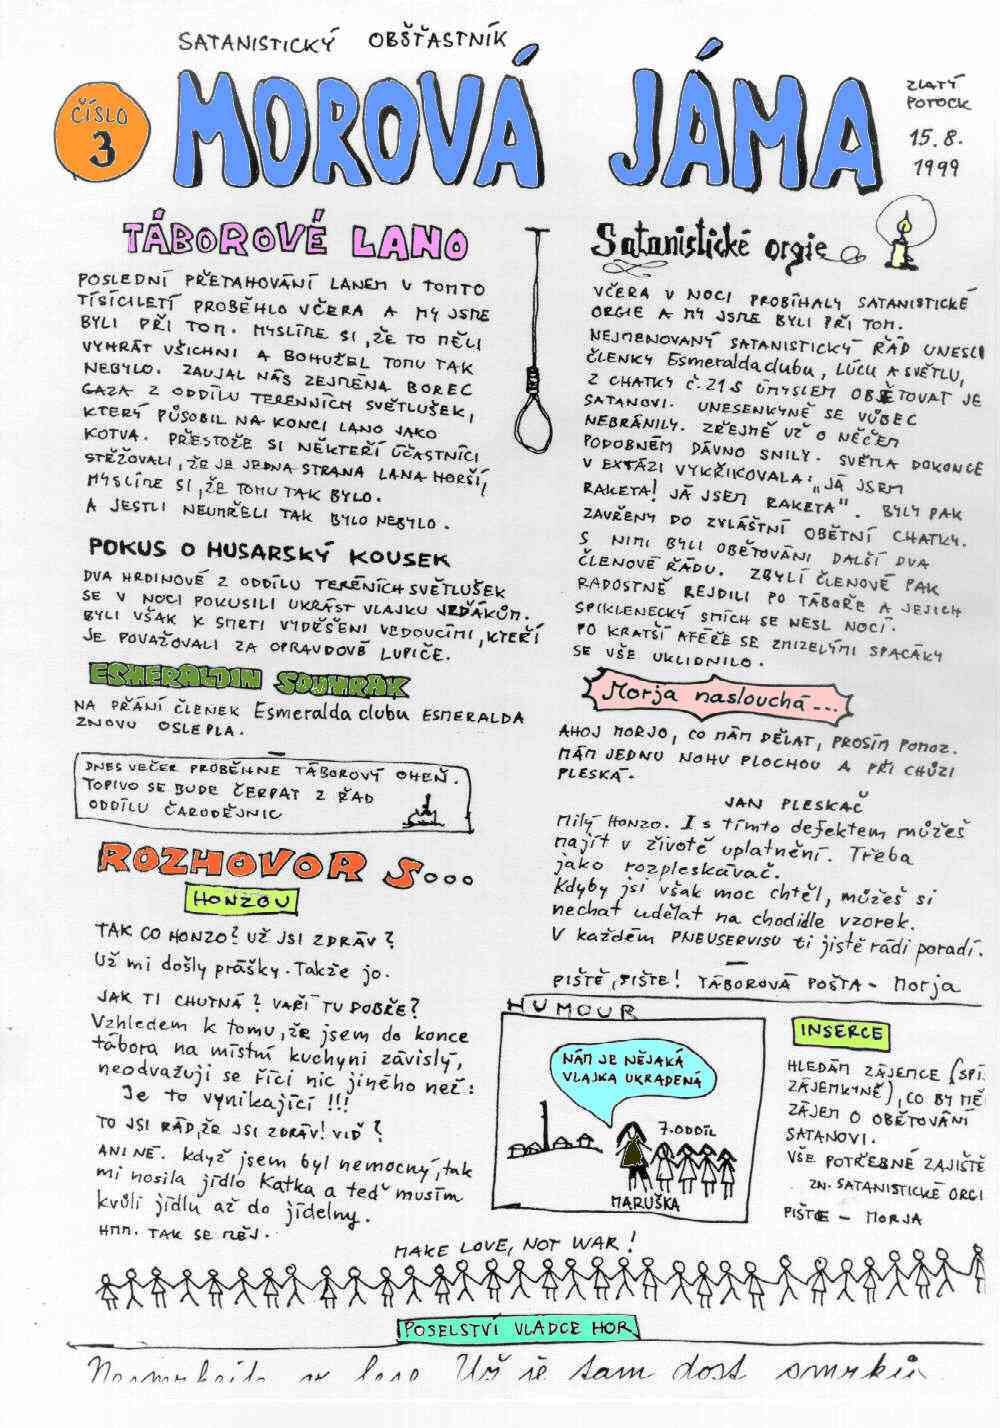 SATANISTICKÝ OBŠŤASTNÍK
ČÍSLO
3
MOROVÁ JÁMA
ZLATÝ
POTOCK
15. 8.
1999
TÁBOROVÉ LANO
POSLEDNÍ PŘETAHOVÁNÍ LANEM V TOMTO
TISÍCILETÍ PROBĚHLO VČERA A MY JSME
BYLI PŘI TOM. MYSLÍME SI, ŽE TO MĚLI
VYHRÁT VŠICHNI A BOHUŽEL TOMU TAK
NEBYLO. ZAUJAL NÁS ZEJMÉNA BOREC
GAZA Z ODDÍLU TERENNÍCH SVĚTLUŠEK,
KTERÝ PŮSOBIL NA KONCI LANO JAKO
KOTVA. PŘESTOŽE SI NĚKTEŘÍ ÚČASTNÍCI
STĚŽOVALI, ŽE JE JEDNA STRANA LANA HORŠÍ,
MYSLÍME SI, ŽE TOMU TAK BYLO.
A JESTLI NEUMŘELI TAK BYLO NEBYLO.
POKUS O HUSARSKÝ KOUSEK
DVA HRDINOVÉ Z ODDÍLU TERÉNÍCH SVĚTLUŠEK
SE V NOCI POKUSILI UKRÁST VLAJKU JEĎÁKŮM.
BYLI VŠAK K SMRTI VYDĚŠENI VEDOUCÍMI, KTEŘÍ
JE POVAŽOVALI ZA OPRAVDOVÉ LUPIČE.
ESMERALDIN SOUMRAK
NA PŘÁNÍ ČLENEK Esmeralda clubu ESMERALDA
ZNOVU OSLEPLA.
DNES VEČER PROBĚHNE TÁBOROVÝ OHEŇ.
TOPIVO SE BUDE ČERPAT Z ŘAD
ODDÍLU ČARODĚJNIC
ROZHOVOR S...
HONZOU
TAK CO HONZO? UŽ JSI ZDRÁV?
Už mi došly prášky. Takže jo.
JAK TI CHUTNÁ? VAŘÍ TU DOBŘE?
Vzhledem k tomu, že jsem do konce
tábora na místní kuchyni závislý,
neodvažuji se říci nic jiného než:
Je to vynikající !!!
TO JSI RÁD, ŽE JSI ZDRÁV! VIĎ?
ANI NE. Když jsem byl nemocný, tak
mi nosila jídlo Katka a teď musím
kvůli jídlu až do jídelny.
HMM. TAK SE MĚJ.
Satanistické orgie
VČERA V NOCI PROBÍHALY SATANISTICKÉ
ORGIE A MY JSME BYLI PŘI TOM.
NEJMENOVANÝ SATANISTICKÝ ŘÁD UNESL
ČLENKY Esmeralda clubu, LÚCU A SVĚTLU,
Z CHATKY Č. 21 S ÚMYSLEM OBĚTOVAT JE
SATANOVI. UNESENKYNĚ SE VŮBEC
NEBRÁNILY. ZŘEJMĚ UŽ O NĚČEM
PODOBNÉM DÁVNO SNILY. SVĚTLA DOKONCE
V EXTÁZI VYKŘIKOVALA: „JÁ JSEM
RAKETA! JÁ JSEM RAKETA“. BYLY PAK
ZAVŘENY DO ZVLÁŠTNÍ OBĚTNÍ CHATKY.
S NIMI BYLI OBĚTOVÁNI DALŠÍ DVA
ČLENOVÉ ŘÁDU. ZBYLÍ ČLENOVÉ PAK
RADOSTNĚ REJDILI PO TÁBOŘE A JEJICH
SPIKLENECKÝ SMÍCH SE NESL NOCÍ.
PO KRATŠÍ AFÉŘE SE ZMIZELÝMI SPACÁKY
SE VŠE UKLIDNILO.
Morja naslouchá...
AHOJ MORJO, CO MÁM DĚLAT, PROSÍM POMOZ.
MÁM JEDNU NOHU PLOCHOU A PŘI CHŮZI
PLESKÁ.
JAN PLESKAČ
Milý HONZO. I s tímto defektem můžeš
najít v životě uplatnění. Třeba
jako rozpleskávač.
Kdyby jsi však moc chtěl, můžeš si
nechat udělat na chodidle vzorek.
V každém PNEUSERVISU ti jistě rádi poradí.
PIŠTĚ, PIŠTE! TÁBOROVÁ POŠTA - Morja
HUMOUR
NÁM JE NĚJAKÁ
VLAJKA UKRADENÁ
7. ODDÍL
MARUŠKA
INSERCE
HLEDÁM ZÁJEMCE (SPÍ
ZÁJEMKYNĚ), CO BY MĚ
ZÁJEM O OBĚTOVÁNÍ
SATANOVI.
VŠE POTŘEBNÉ ZAJIŠTĚ
ZN. SATANISTICKÉ ORGI
PIŠTE - MORJA
MAKE LOVE, NOT WAR!
POSELSTVÍ VLÁDCE HOR
Nesmrkejte v lese Už je tam dost smrků